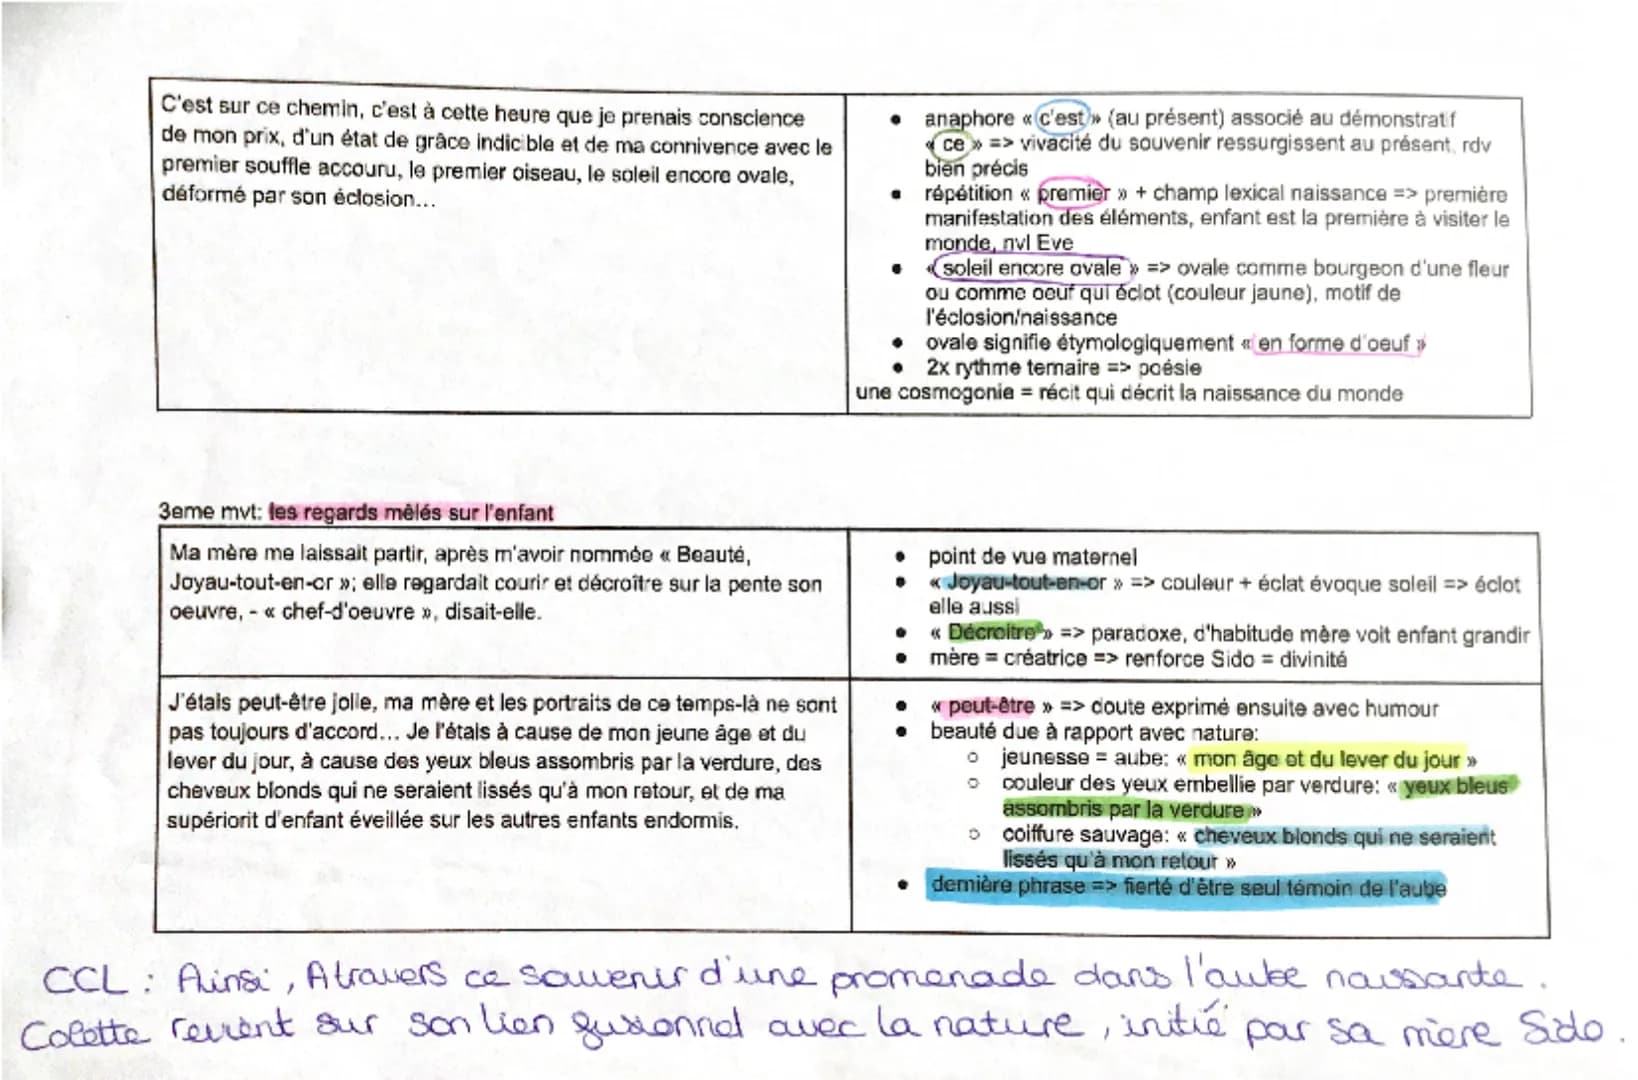 C'est sur ce chemin, c'est à cette heure que je prenais conscience
de mon prix, d'un état de grâce indicible et de ma connivence avec le
premier souffle accouru, le premier oiseau, le soleil encore ovale,
déformé par son éclosion...
• anaphore « c'est » (au présent) associé au démonstratif
« ce » => vivacité du souvenir ressurgissent au présent, rdv
bien précis
• répétition « premier » + champ lexical naissance => première
manifestation des éléments, enfant est la première à visiter le
monde, nvl Eve
• « soleil encore ovale » => ovale comme bourgeon d'une fleur
ou comme oeuf qui éclot (couleur jaune), motif de
l'éclosion/naissance
• ovale signifie étymologiquement « en forme d'oeuf »
• 2x rythme ternaire => poésie
une cosmogonie = récit qui décrit la naissance du monde
3eme mvt: les regards mêlés sur l'enfant
Ma mère me laissait partir, après m'avoir nommée « Beauté,
Joyau-tout-en-or »; elle regardait courir et décroître sur la pente son
oeuvre, - « chef-d'oeuvre », disait-elle.
• point de vue maternel
• « Joyau-tout-en-or » => couleur + éclat évoque soleil => éclot
elle aussi
• « Décroitre » => paradoxe, d'habitude mère voit enfant grandir
• mère = créatrice => renforce Sido = divinité
J'étais peut-être jolie, ma mère et les portraits de ce temps-là ne sont
pas toujours d'accord... Je l'étais à cause de mon jeune âge et du
lever du jour, à cause des yeux bleus assombris par la verdure, des
cheveux blonds qui ne seraient lissés qu'à mon retour, et de ma
supériorit d'enfant éveillée sur les autres enfants endormis.
• « peut-être » => doute exprimé ensuite avec humour
• beauté due à rapport avec nature:
○ jeunesse = aube: « mon âge et du lever du jour »
○ couleur des yeux embellie par verdure: « yeux bleus
assombris par la verdure »
○ coiffure sauvage: « cheveux blonds qui ne seraient
lissés qu'à mon retour »
• dernière phrase => fierté d'être seul témoin de l'aube
CCL : Ainsi, A travers ce souvenir d'une promenade dans l'aube naissante.
Colette revient sur son lien fusionnel avec la nature, initié par sa mère Sido.